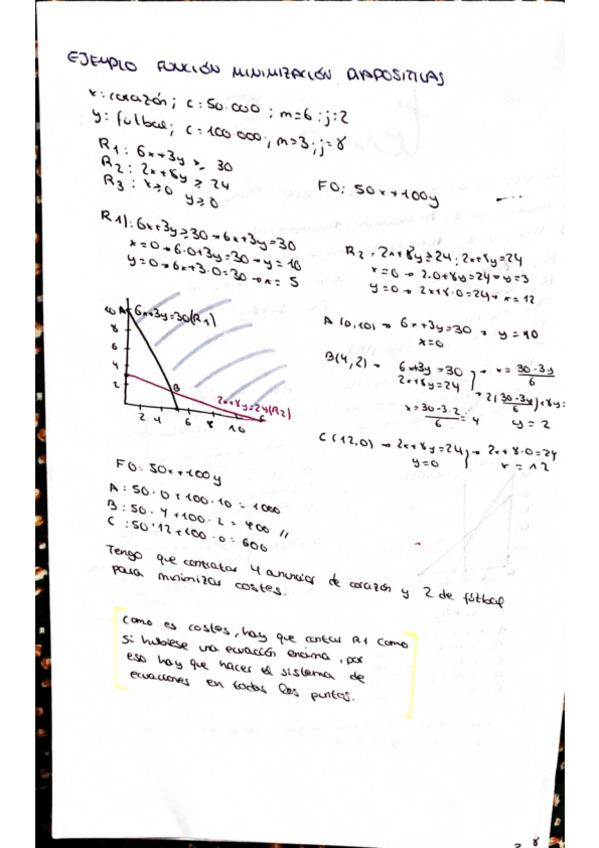 EJEMPLO FUNCIÓN MINIMIZACIÓN DIAPOSITIVAS
x: corazón; c: 50.000; m=6; j=2
y: fútbol; c=100.000; m=3; j=8
R1: 6x+3y ≥ 30
R2: 2x+8y ≥ 24
R3: x≥0
y≥0
FO: 50x+100y
R1): 6x+3y≥30 → 6x+3y=30
x=0 → 6·0+3y=30 → y=10
y=0 → 6x+3·0=30 → x=5
R2: 2x+8y≥24; 2x+8y=24
x=0 → 2·0+8y=24 → y=3
y=0 → 2x+8·0=24 → x=12
10 A 6x+3y=30 (R1)
8
6
4
2
B
2x+8y=24 (R2)
2 4 6 8 10
A (0,10) → 6x+3y=30 → y=10
x=0
B(4,2) → 6x+3y=30 → x=30-3y/6
2x+8y=24 → 2(30-3y/6)+8y=
x=30-3·2/6=4 y=2
C (12,0) → 2x+8y=24 → 2x+8·0=24
y=0 x=12
FO: 50x+100y
A: 50·0+100·10=1000
B: 50·4+100·2=400 //
C: 50·12+100·0=600
Tengo que contratar 4 anuncios de corazón y 2 de fútbol
para minimizar costes.
Como es costes, hay que contar R1 como
si hubiese una ecuación encima, por
eso hay que hacer el sistema de
ecuaciones en todos los puntos.